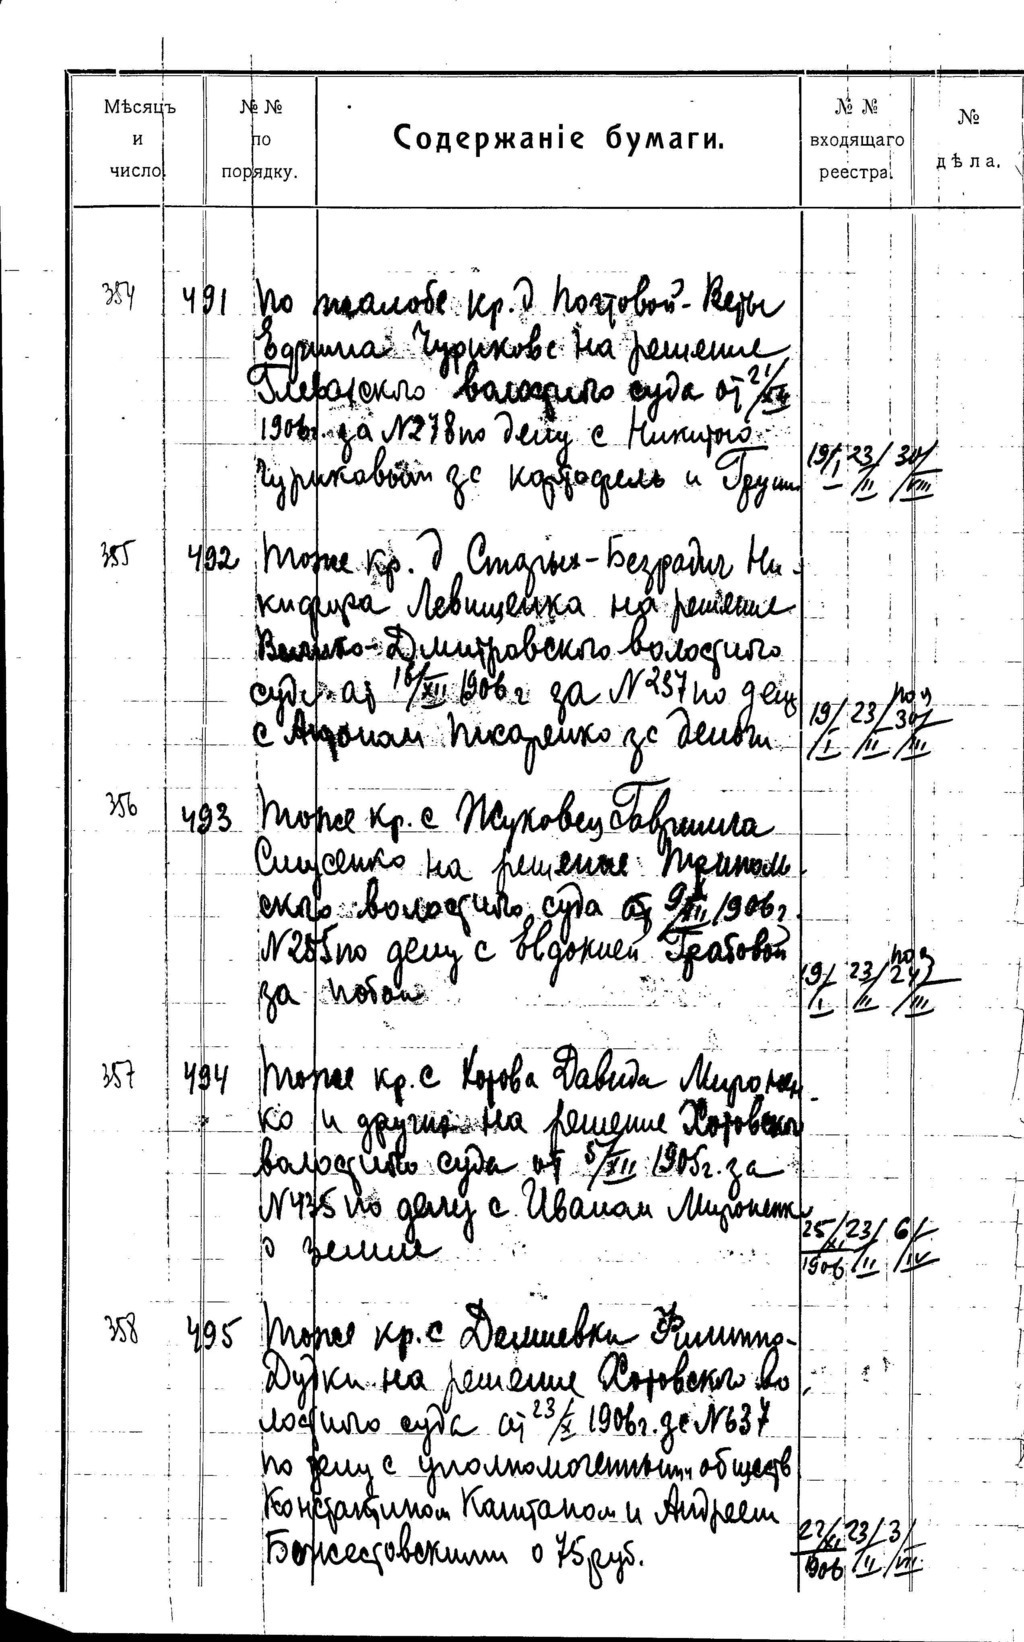 Мѣсяцъ и число
№ № по порядку.
Содержаніе бумаги.
№ № входящаго реестра.
№ дѣла.
354 491 По жалобе кр. д Почтовой-Веты
Чурикова на решение
Глевахского волостного суда от 21/XII
1906 г. за N278 по делу с Никитою
Чуриковым за картофель и Груши
19/I 23/II 30/VIII
355 492 Тоже кр. д Старых-Безрадич Ни-
кифора Левищенка на решение
Велико-Дмитровского волостного
суда от 16/XII 1906 г за N237 по делу
с Антоном Писаренко за деньги
19/I 23/II 30/III
356 493 Тоже кр. с Жуковец Гавриила
на решение Триполь-
ского волостного суда от 9/XII 1906 г.
N255 по делу с Евдокией Грабовой
за побои
19/I 23/II 24/III
357 494 Тоже кр. с Хотова Давида Миронен-
ко и других на решение Хотовского
волостного суда от 5/XII 1905 г. за
N435 по делу с Иваном Мироненко
о земле
25/XI 1906 23/II 6/IV
358 495 Тоже кр. с Демиевки Филиппа
Дудки на решение Хотовского во
лостного суда от 23/X 1906 г. за N637
по делу с уполномоченными обществ
Константином Каштаном и Андреем
Божестовскими о 75 руб.
22/XI 1906 23/II 3/VII